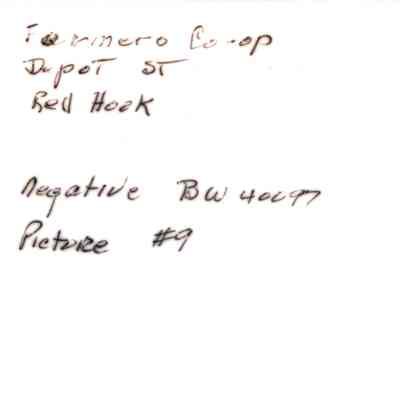 Farmers Co-op
Depot ST
Red Hook
Negative BW 40097
Picture #9